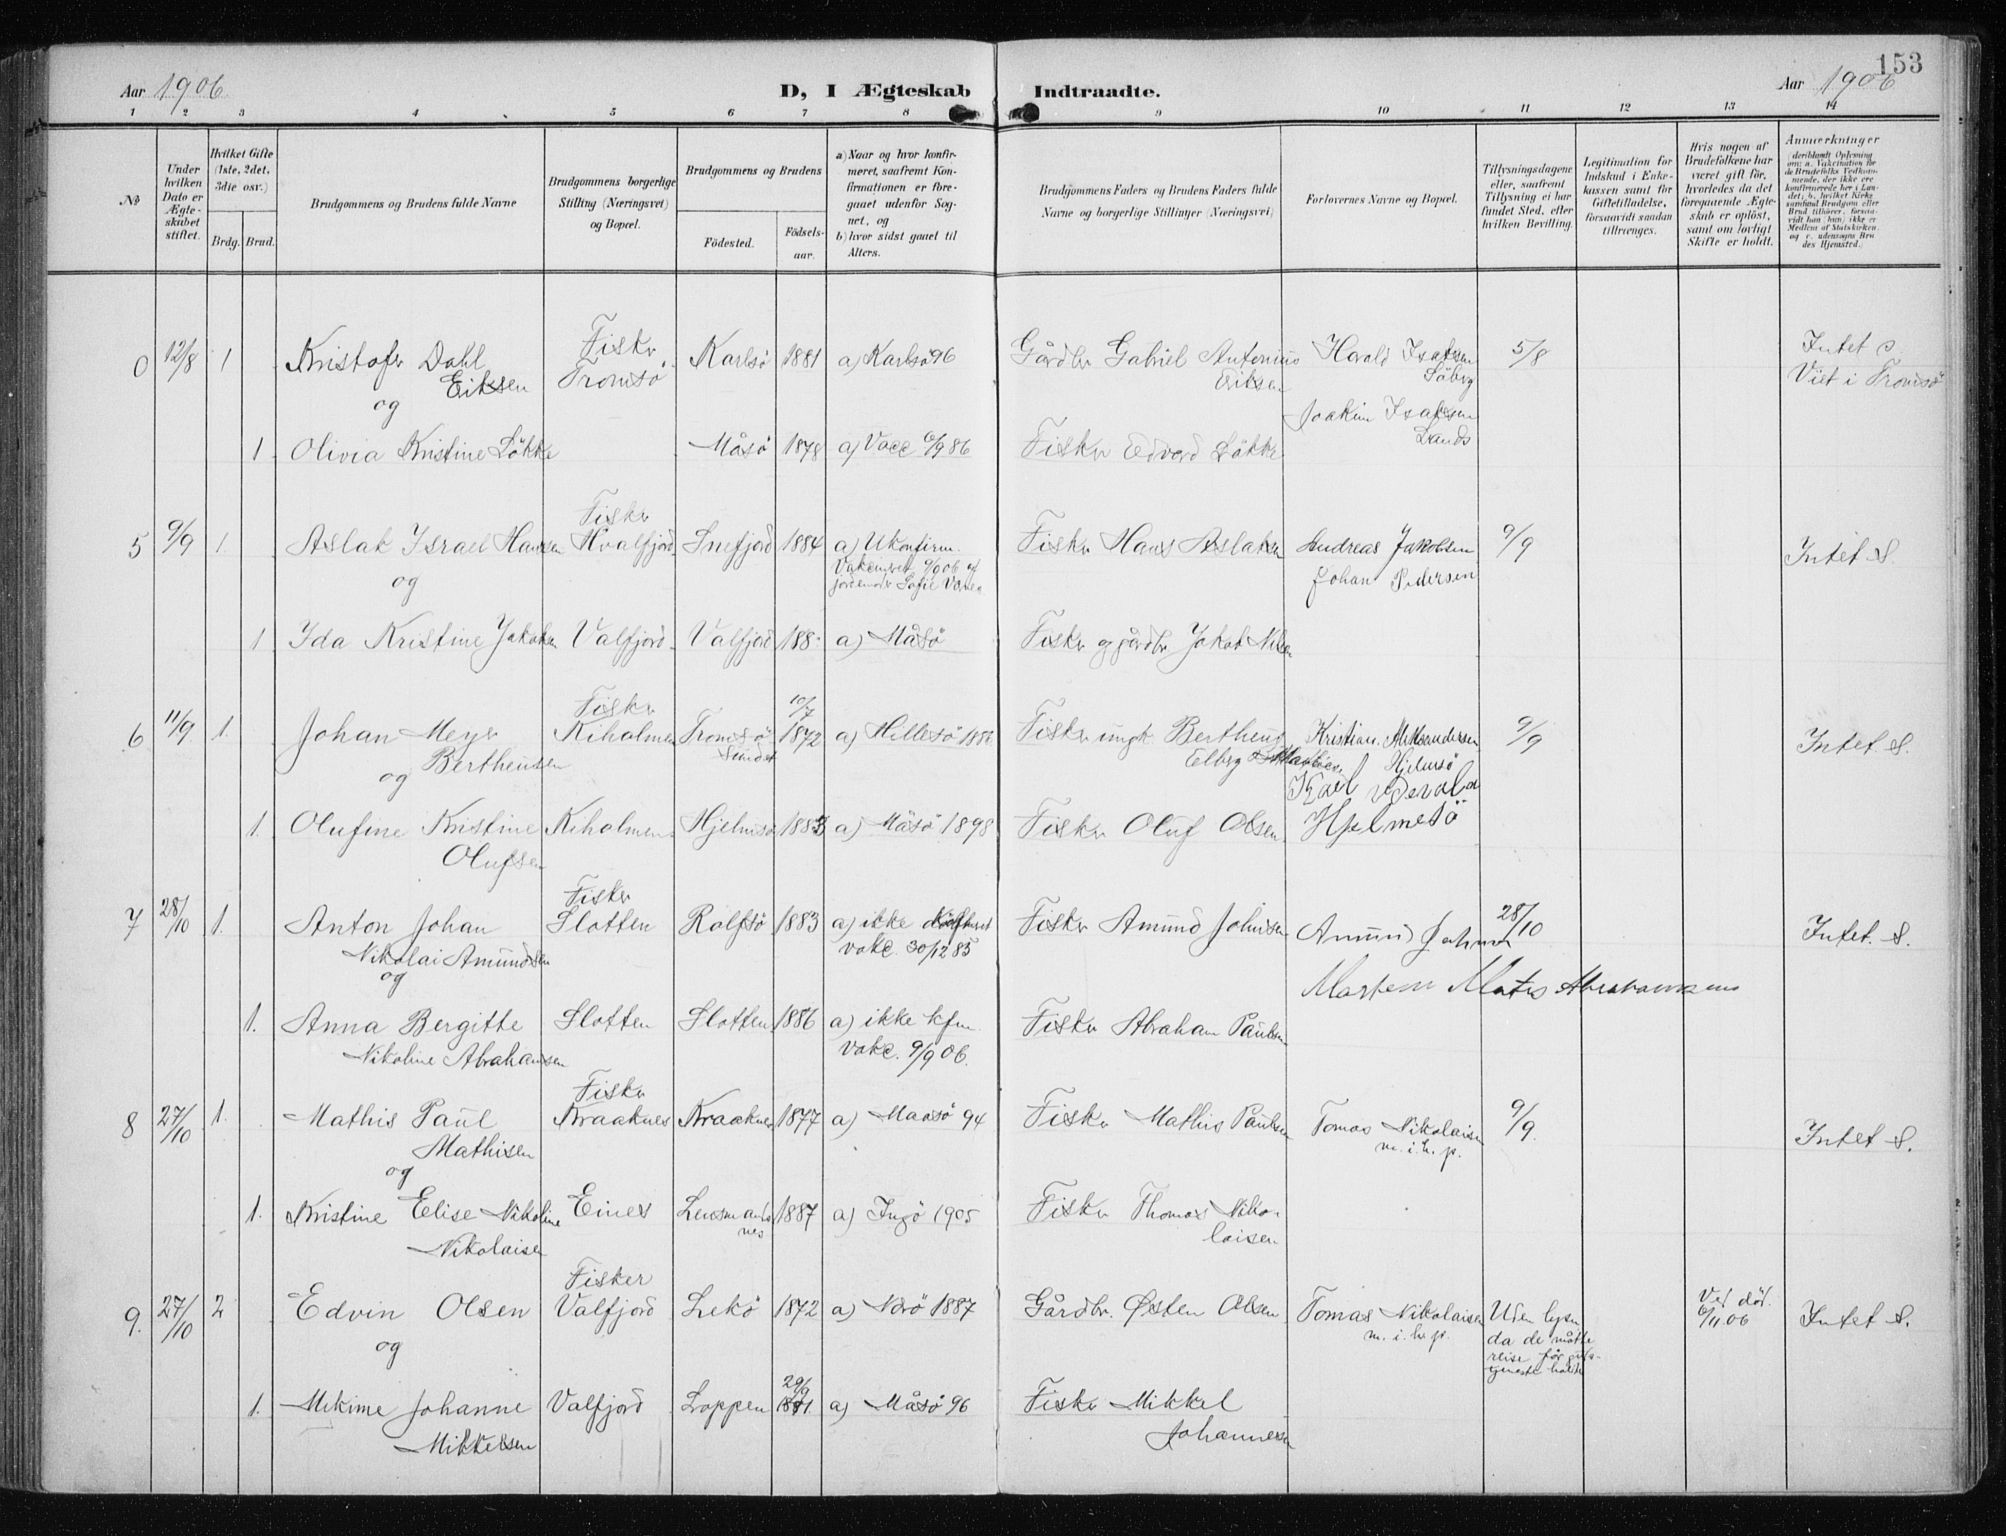 153
Aar 1906 D, I Ægteskab Indtraadte. Aar 1906
1 2 3 4 5 6 7 8 9 10 11 12 13 14
№
Under hvilken Dato er Ægteskabet stiftet.
Hvilket Gifte (1ste, 2det, 3die osv.)
Brdg. Brud.
Brudgommens og Brudens fulde Navne
Brudgommens borgerlige Stilling (Næringsvei) og Bopæl.
Brudgommens og Brudens
Födested. Födselsaar.
a) Naar og hvor konfirmeret, saafremt Konfirmationen er foregaaet udenfor Sognet, og
b) hvor sidst gaaet til Alters.
Brudgommens Faders og Brudens Faders fulde Navne og borgerlige Stillinger (Næringsvei)
Forlovernes Navne og Bopæl.
Tillysningsdagene eller, saafremt Tillysning ei har fundet Sted, efter hvilken Bevilling.
Legitimation for Indskud i Enkekassen samt for Giftetilladelse, forsaavidt saadan tiltrænges.
Hvis nogen af Brudefolkene har været gift för, hvorledes da det foregaaende Ægteskab er oplöst, samt om lovligt Skifte er holdt.
Anmærkninger
0 12/8 1 Kristofer Dahl Eriksen Fisker Tromsö Karlsö 1881 a) Karlsö 96 Gårdbr Gabriel Antonius Eriksen Harald Isaksen Söberg 5/8 Intet s. Viet i Tromsö
og Joakim Isaksen
1 Olivia Kristine Lökke Måsö 1878 a) Vacc 86 Fisker Edvard Lökke
5 9/9 1. Aslak Israel Hansen Fisker Hvalfjord Snefjord 1884 a) Ukonfirm. Fisker Hans Aslaksen Andreas Jakobsen 9/9 Intet S.
og Johan Pedersen
1 Ida Kristine Jakobsen Valfjord Valfjord 188 a) Måsö Fisker og gårdbr Jakob Nilsen
6 11/9 1. Johan Meyer Bertheusen Fisker Kiholmen Tromsösundet 10/7 1872 a) Hillesö 1886 Fisker ungk Bertheus Elberg Kristian Aleksandersen Hjelmsö 9/9 Intet S.
og Karl
1. Olufine Kristine Olufsen Kiholmen Hjelmsö 1883 a) Måsö 1898 Fisker Oluf Olsen Hjelmesö
7 28/10 1. Anton Johan Nikolai Amundsen Fisker Slotten Rolfsö 1883 a) ikke vakc. 30/12 85 Fisker Amund Johnsen Amund Johnsen 28/10 Intet. S.
og Morten Mates Abrahamsens
1. Anna Bergitte Nikoline Abrahamsen Slotten Slotten 1886 a) ikke kfm. vakc. 9/9 06. Fisker Abraham Paulsen
8 27/10 1. Mathis Paul Mathisen Fisker Kraaknes Kraaknes 1877 a) Maasö 94 Fisker Mathis Paulsen Tomas Nikolaisen m. i. h. p. 9/9. Intet S.
og
1. Kristine Elise Nikoline Nikolaisen Eines Lensmandsnes 1887 a) Ingö 1905 Fisker Thomas Nikolaisen
9. 27/10 2 Edvin Olsen Fisker Valfjord Lekö 1872 a) Nærö 1887 Gårdbr. Østen Olsen Tomas Nikolaisen m. i. h. p. Uden lysn da de måtte reise før holdt Ved död. 6/11 06 Intet S.
og
1. Mekime Johanne Mikkelsen Valfjord Loppen 29/9 1881. a) Måsö 96 Fisker Mikkel Johannesen